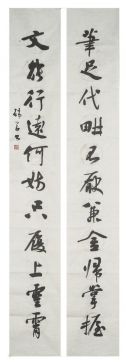 筆足代畊不厭兼金歸掌握
文能行遠何妨只履上雲霄